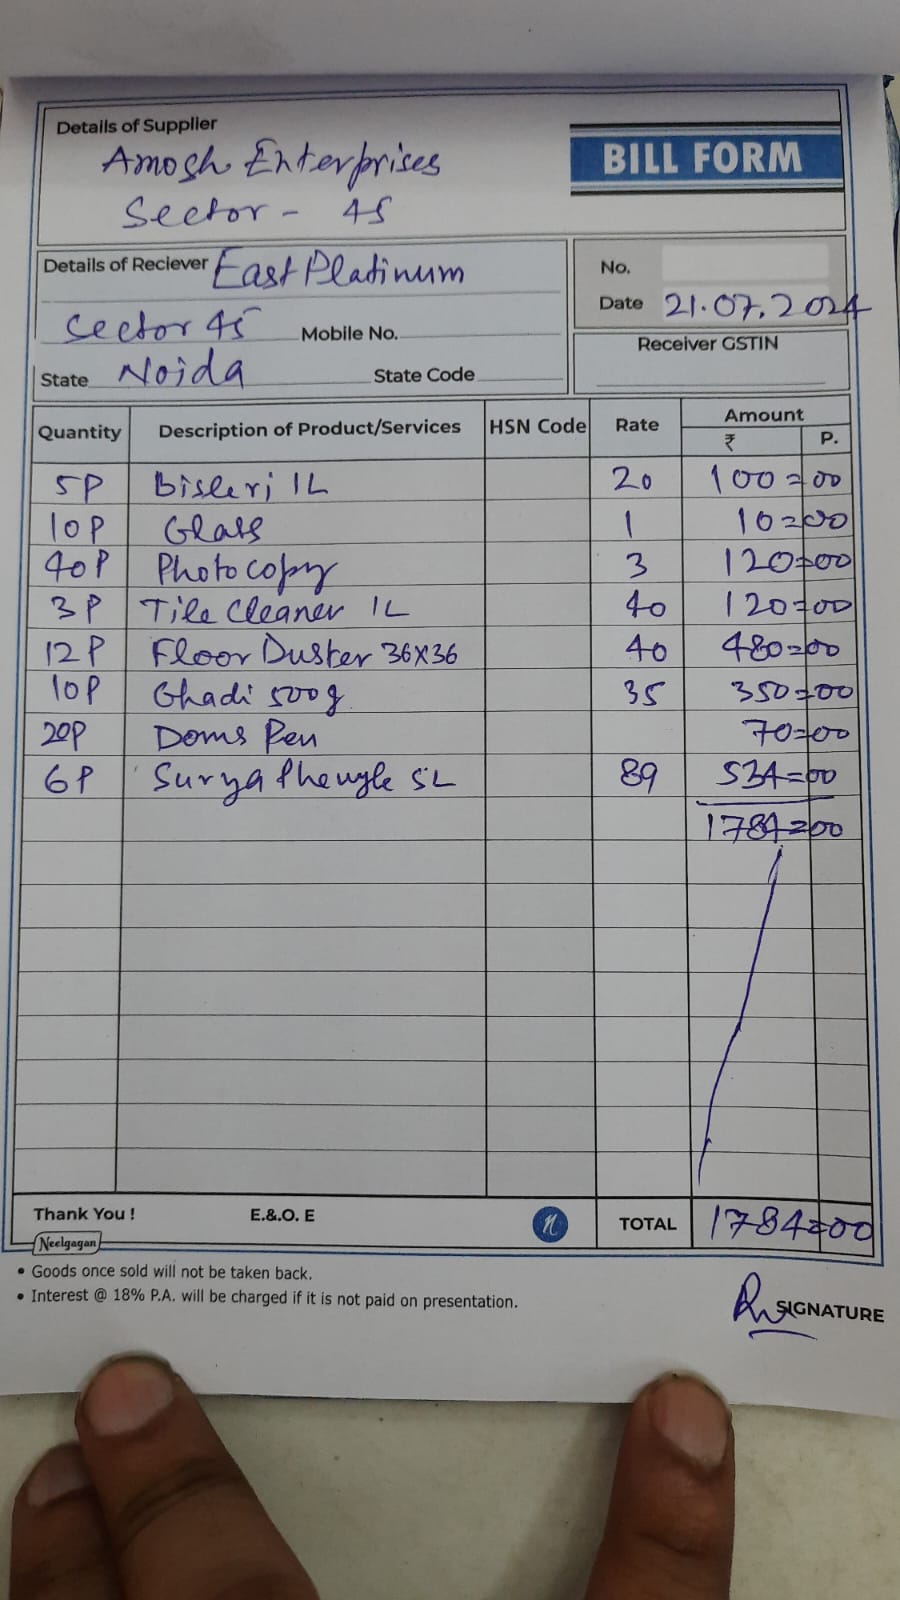 Details of Supplier
Amosh Enterprises
BILL FORM
Sector - 45
Details of Reciever East Platinum
No.
Date 21.07.2024
Sector 45 Mobile No.
Receiver GSTIN
State Noida State Code
Quantity Description of Product/Services HSN Code Rate Amount
₹ P.
5P Bisleri 1L 20 100=00
10P Glass 1 10=00
40P Photocopy 3 120=00
3P Tile Cleaner 1L 40 120=00
12P Floor Duster 36X36 40 480=00
10P Ghadi 500g 35 350=00
20P Doms Pen 70=00
6P Surya Phenyle 5L 89 534=00
1784=00
Thank You ! E.&.O. E n TOTAL 1784=00
Neelgagan
• Goods once sold will not be taken back.
• Interest @ 18% P.A. will be charged if it is not paid on presentation.
SIGNATURE